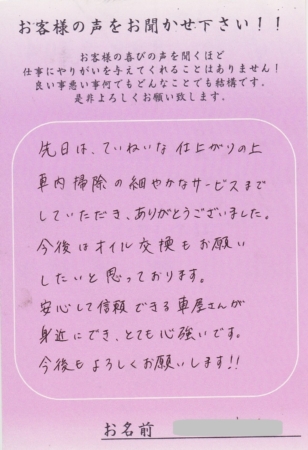 お客様の声をお聞かせ下さい！！
お客様の喜びの声を聞くほど
仕事にやりがいを与えてくれることはありません！
良い事悪い事何でもどんなことでも結構です．
是非よろしくお願い致します．
先日は、ていねいな仕上がりの上
車内掃除の細やかなサービスまで
していただき、ありがとうございました。
今後はオイル交換もお願い
したいと思っております。
安心して信頼できる車屋さんが
身近にでき、とても心強いです。
今後もよろしくお願いします!!
お名前